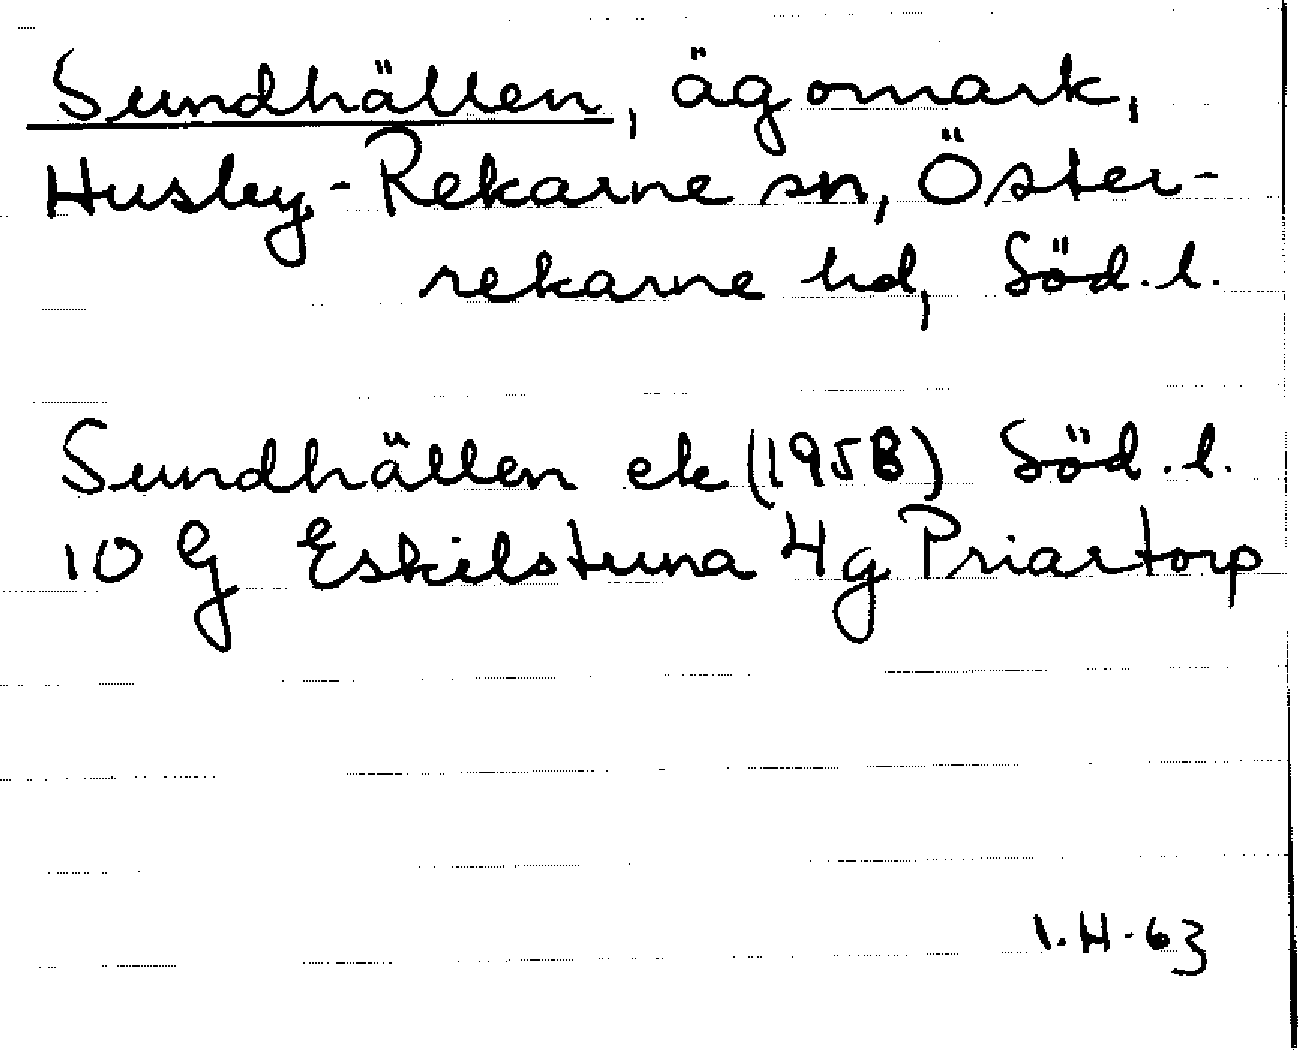 Sundhällen, ägomark,
Husby-Rekarne sn, Öster-
rekarne hd, Söd.l.
Sundhällen ek (1958) Söd.l.
10 G Eskilstuna 4g Priartorp
I.H-63